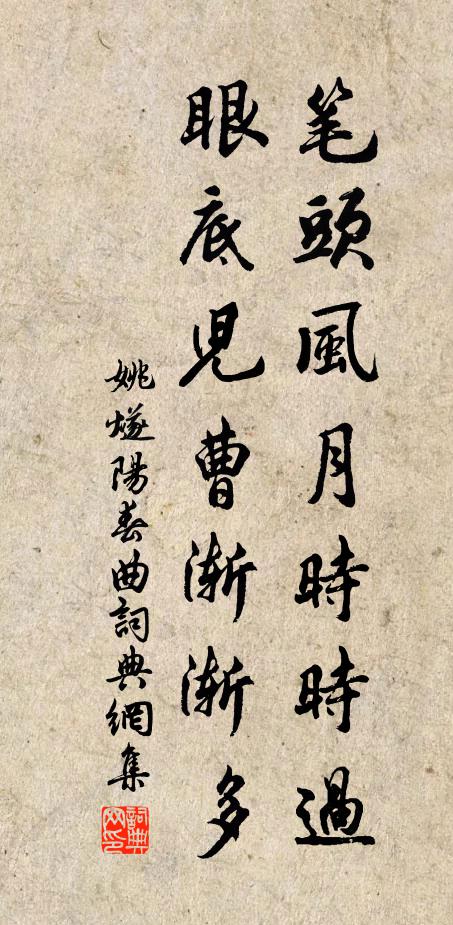 笔頭風月時時過
眼底児曹漸漸多
姚燧陽春曲詞典網集
詞典网印